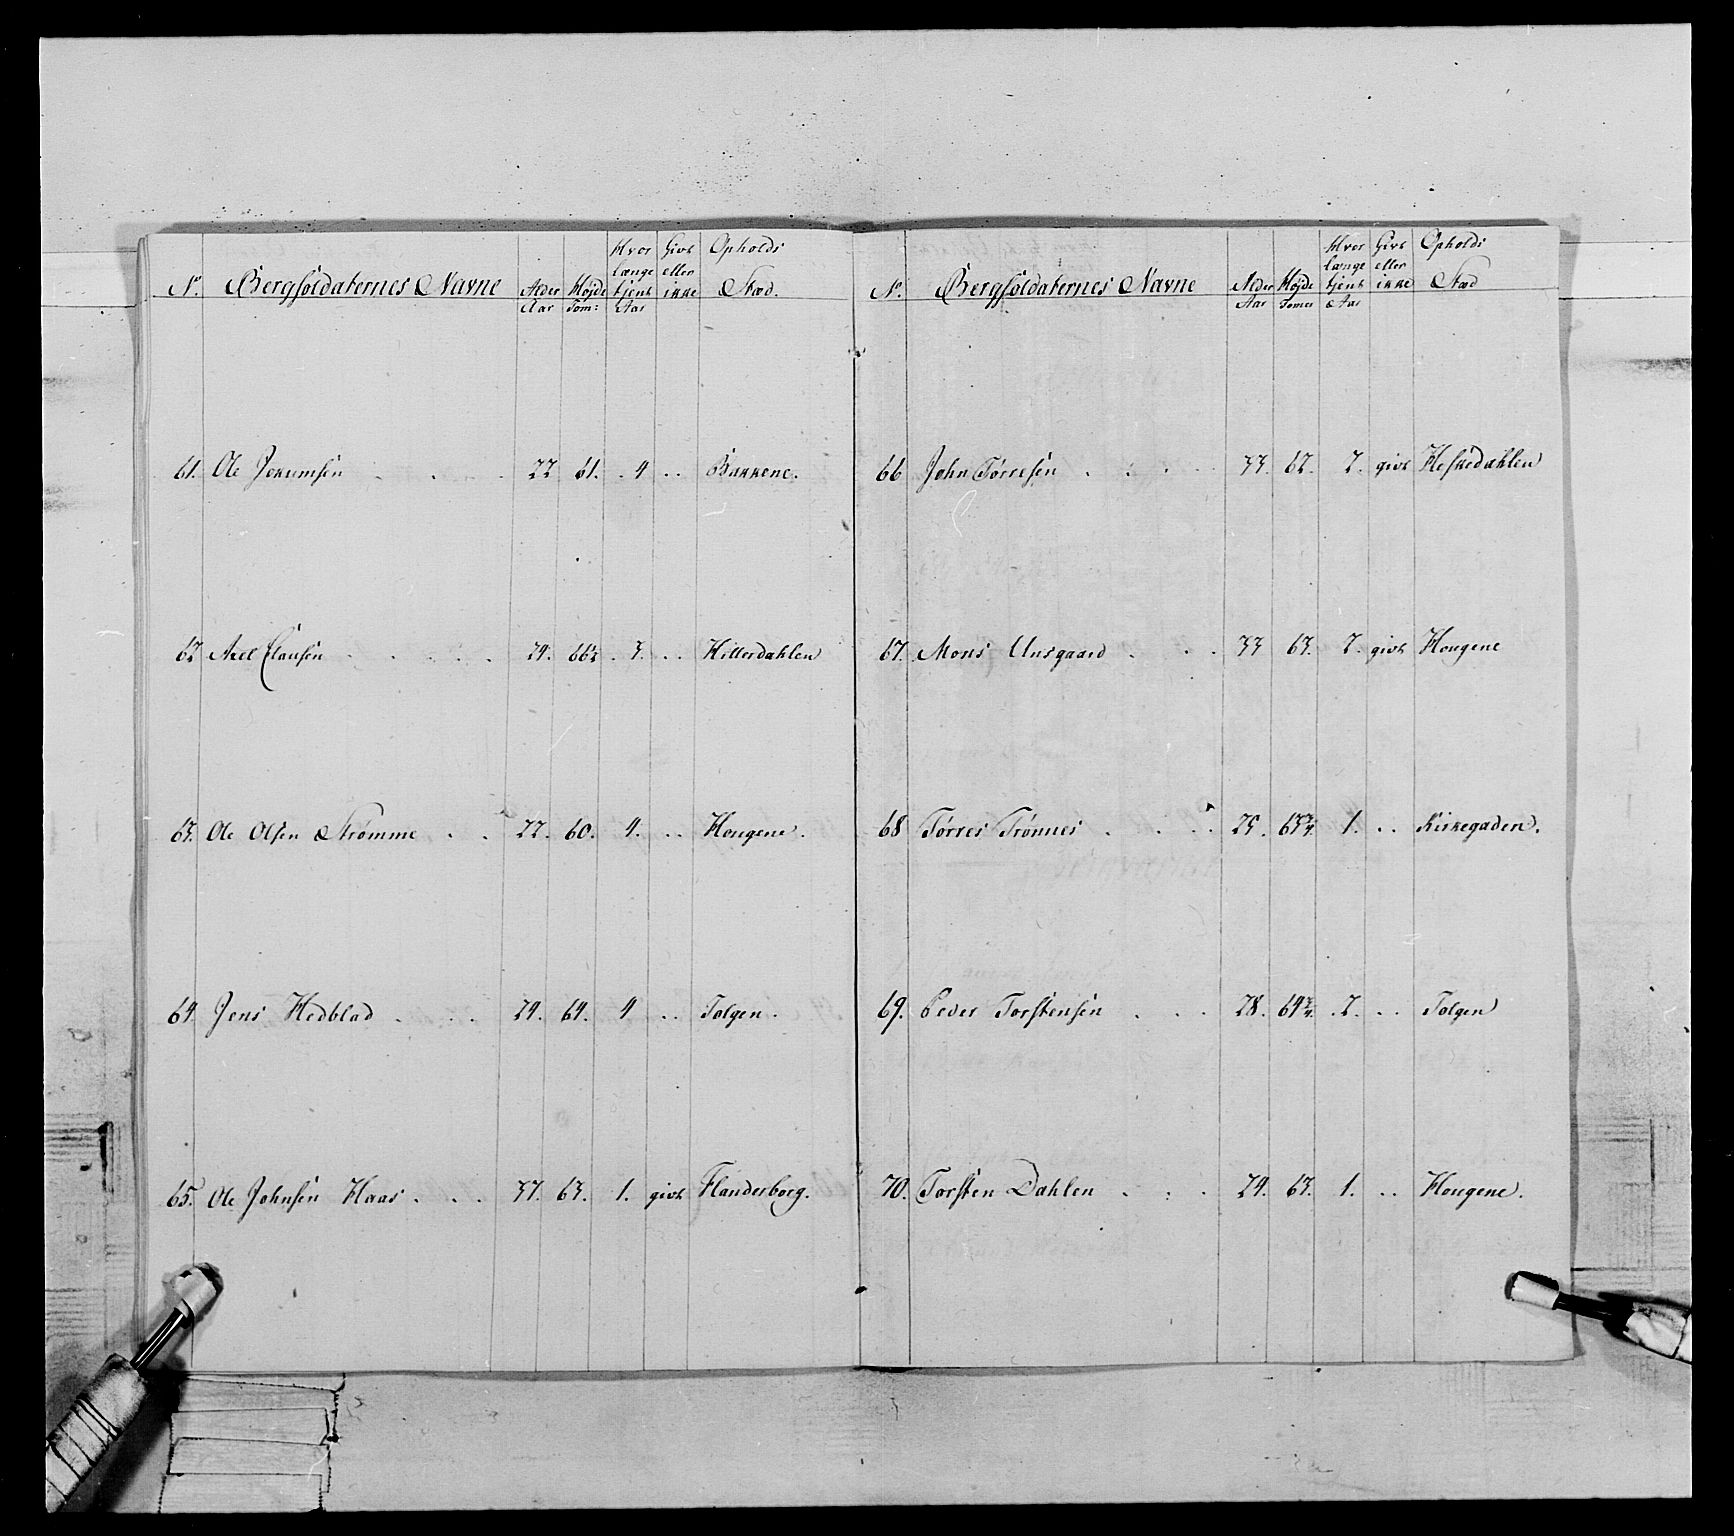 No. Bergsoldaternes Navne Alder Aar Højde Tom: Hvor længe tjent Aar Givt eller ikke Opholds Stæd.
61. Ole Jerumsen 22 61. 4 Bakkene.
62 Axel Clausen 24. 66½ 3. Hitterdahlen
63. Ole Olsen Strømme 22. 60. 4. Hougene.
64. Jens Hedblad 24. 64. 4 Tolgen.
65. Ole Johnsen Haas 37. 63. 1. givt Flanderborg.
No. Bergsoldaternes Navne Alder Aar Højde Tomer Hvor længe tjent Aar Givt eller ikke Opholds Stæd
66 John Tørresen 33. 62. 2. givt Heskedahlen
67. Mons Unsgaard 33 63. 2. givt Hougene
68 Tørres Trønnes 25. 63¾. 1. Kirkegaden.
69. Peder Torstensen 28. 64¾. 2. Tolgen
70. Torsten Dahlen 24. 63. 1. Hougene.